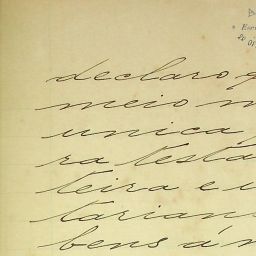 declaro q
meio
unica,
ra testa
teira e u
tarian
bens á m